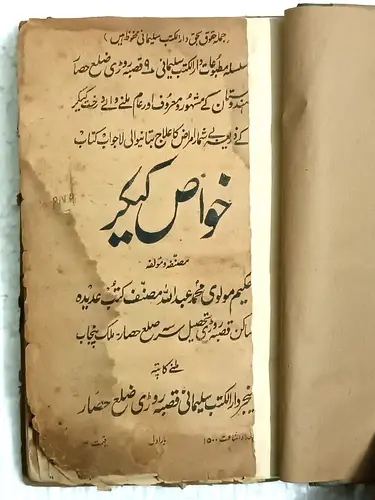 (جملہ حقوق بحق دارالکتب سلیمانی محفوظ ہیں)
سلسلہ مطبوعات دارالکتب سلیمانی ۹ قصبہ روڑی ضلع حصار
ہندوستان کے مشہور و معروف اور عام ملنے والے درخت کیکر
کے ذریعہ بے شمار امراض کا علاج بتانیوالی لاجواب کتاب
خواص کیکر
مصنفہ و مؤلفہ
حکیم مولوی محمد عبداللہ مصنف کتب عدیدہ
ساکن قصبہ روڑی تحصیل سرسہ ضلع حصار۔ ملک پنجاب
ملنے کا پتہ
مینجر دارالکتب سلیمانی قصبہ روڑی ضلع حصار
تعداد اشاعت ۱۵۰۰ بار اول قیمت